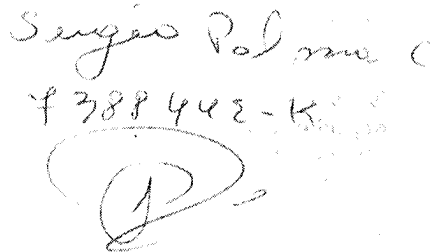 Sergio Palma C
7388442-K